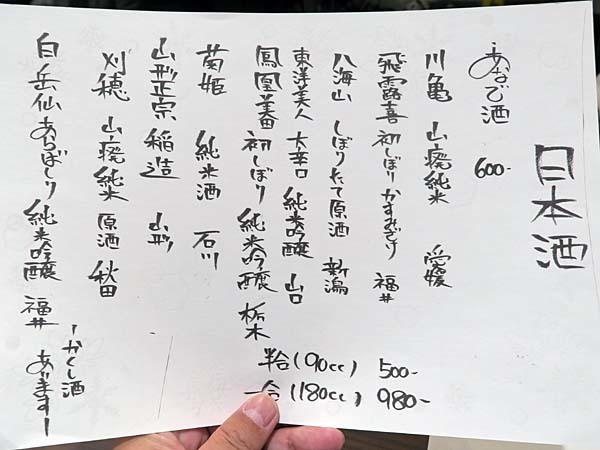 日本酒
あなご酒 600-
川亀 山廃純米 愛媛
飛露喜 初しぼり かすみざけ 福井
八海山 しぼりたて原酒 新潟
東洋美人 大辛口 純米吟醸 山口
鳳凰美田 初しぼり 純米吟醸 栃木
菊姫 純米酒 石川
山形正宗 稲造 山形
刈穂 山廃純米 原酒 秋田
白岳仙 あらばしり 純米吟醸 福井
半合(90cc) 500-
一合(180cc) 980-
-かくし酒
あります-